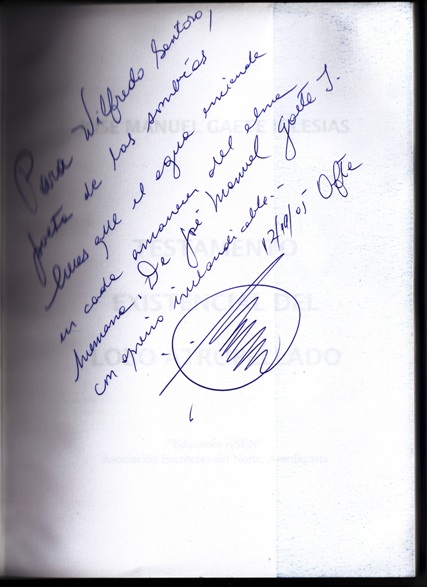 Para Wilfredo Santoro,
poeta de las sombrías
luces que el agua enciende
en cada amanecer del alma
humana. De José Manuel Gaete I.
con cariño
17/10/05 Ofte
JOSE MANUEL GAETE IGLESIAS
TESTAMENTO
EXISTENCIAL DEL
LOBO
Ediciones ASEN
Asociación Escritores del Norte, Antofagasta